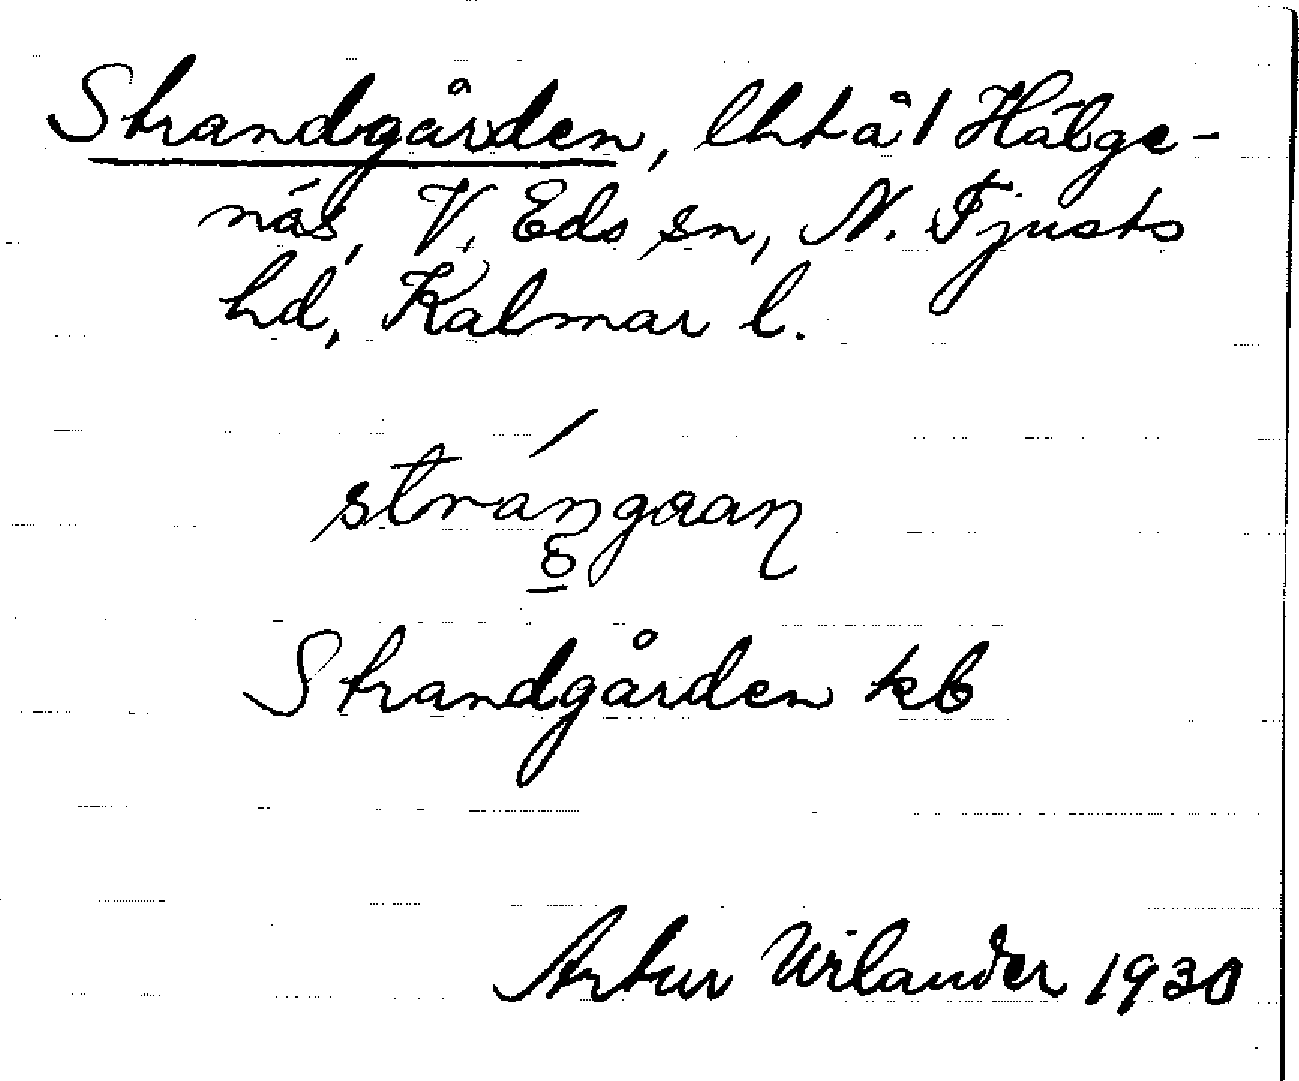 Strandgården, lht å 1 Hälge-
näs, V. Eds sn, N. Tjusts
hd, Kalmar l.
strángaan
Strandgården kb
Artur Wilander 1930